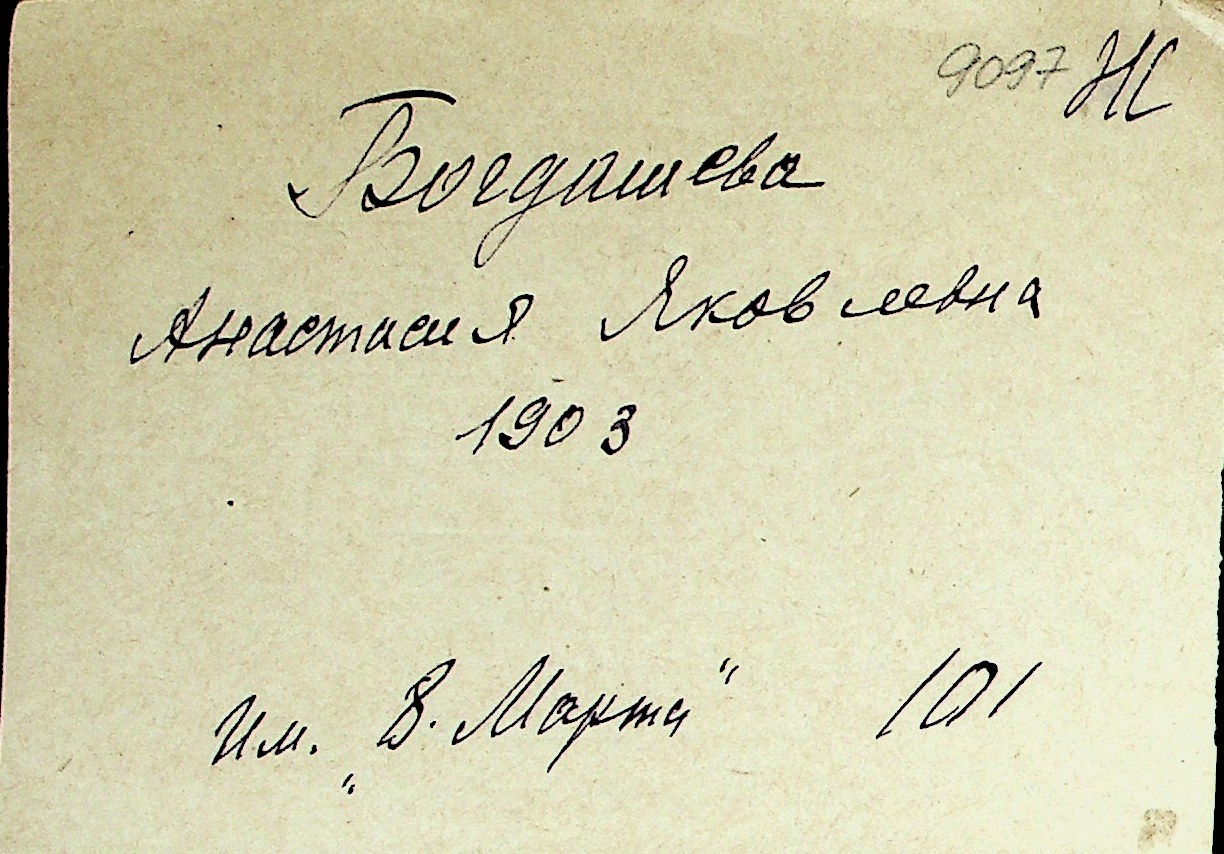 9097 Ж
Богдашева
Анастасия Яковлевна
1903
Им. „8. Марта" 101